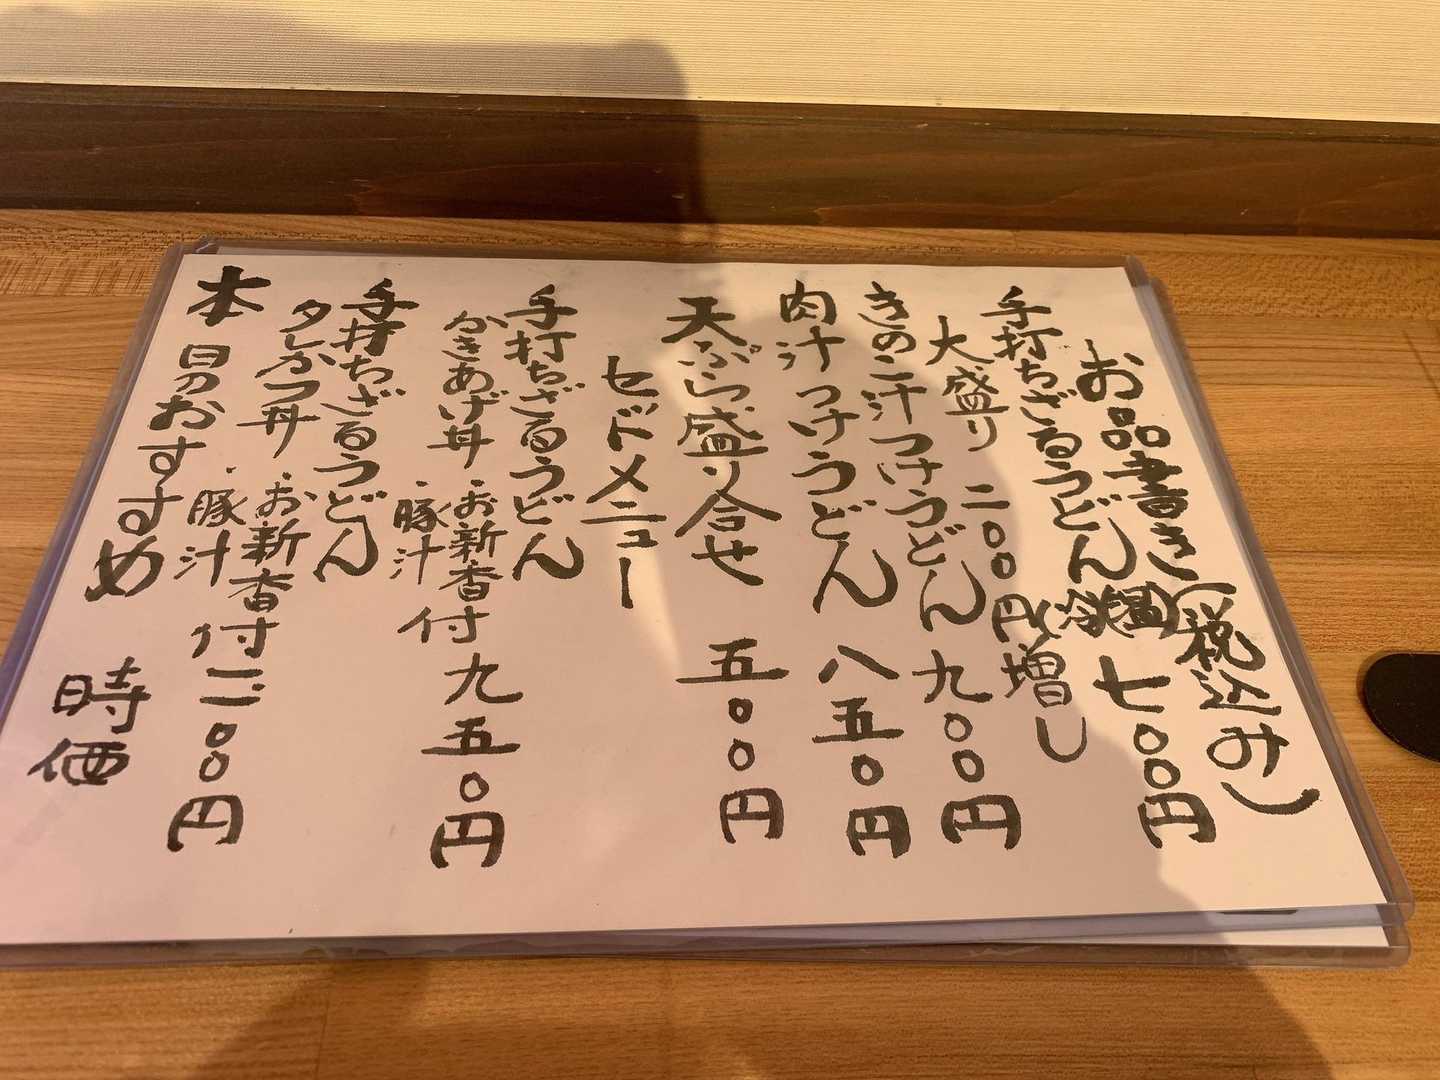 お品書き(税込み)
手打ちざるうどん(冷・温)七〇〇円
大盛り 二〇〇円増し
きのこ汁つけうどん 九〇〇円
肉汁つけうどん 八五〇円
天ぷら盛り合せ 五〇〇円
セットメニュー
手打ちざるうどん
かきあげ丼・お新香付 九五〇円
・豚汁
手打ちざるうどん
タレかつ丼・お新香付 一二〇〇円
・豚汁
本日のおすすめ 時価